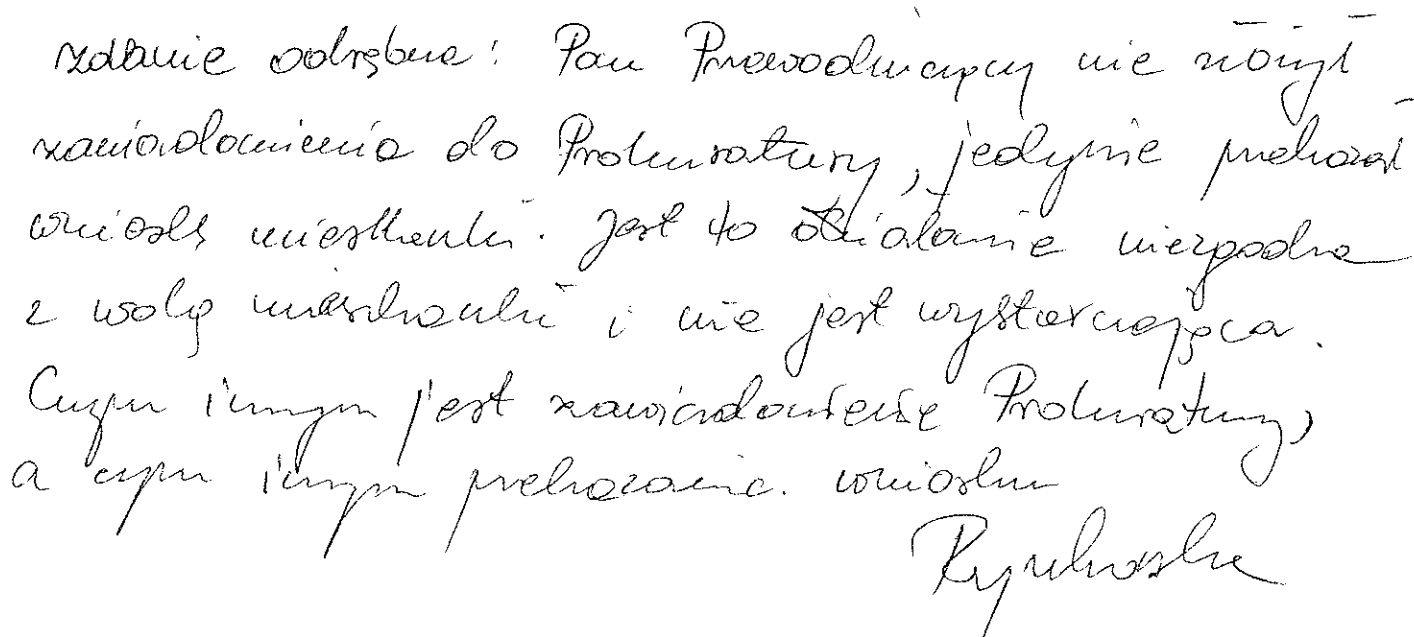 zdanie odrębne: Pan Przewodniczący nie złożył
zawiadomienia do Prokuratury, jedynie przekazał
wniosek mieszkanki. Jest to działanie niezgodne
z wolą mieszkanki i nie jest wystarczające.
Czym innym jest zawiadomienie Prokuratury,
a czym innym przekazanie wniosku